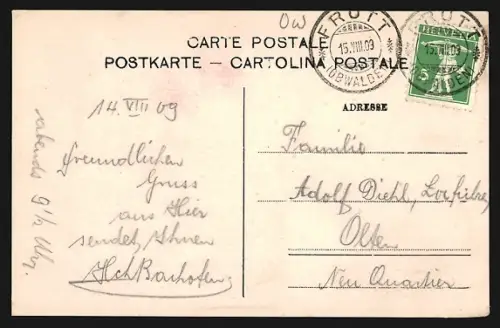 OW
CARTE POSTALE
POSTKARTE – CARTOLINA POSTALE
FRUTT
15.VIII.09
(OBWALDEN)
FRUTT
15.VIII.09
HELVETIA
5
ADRESSE
14. VIII 09
freundlichen
Gruss
aus Hier
sendet Ihnen
Hch Bachofen
abends 9 ½ Uhr.
Familie
Adolf Diehl,
Olten
Neu Quartier